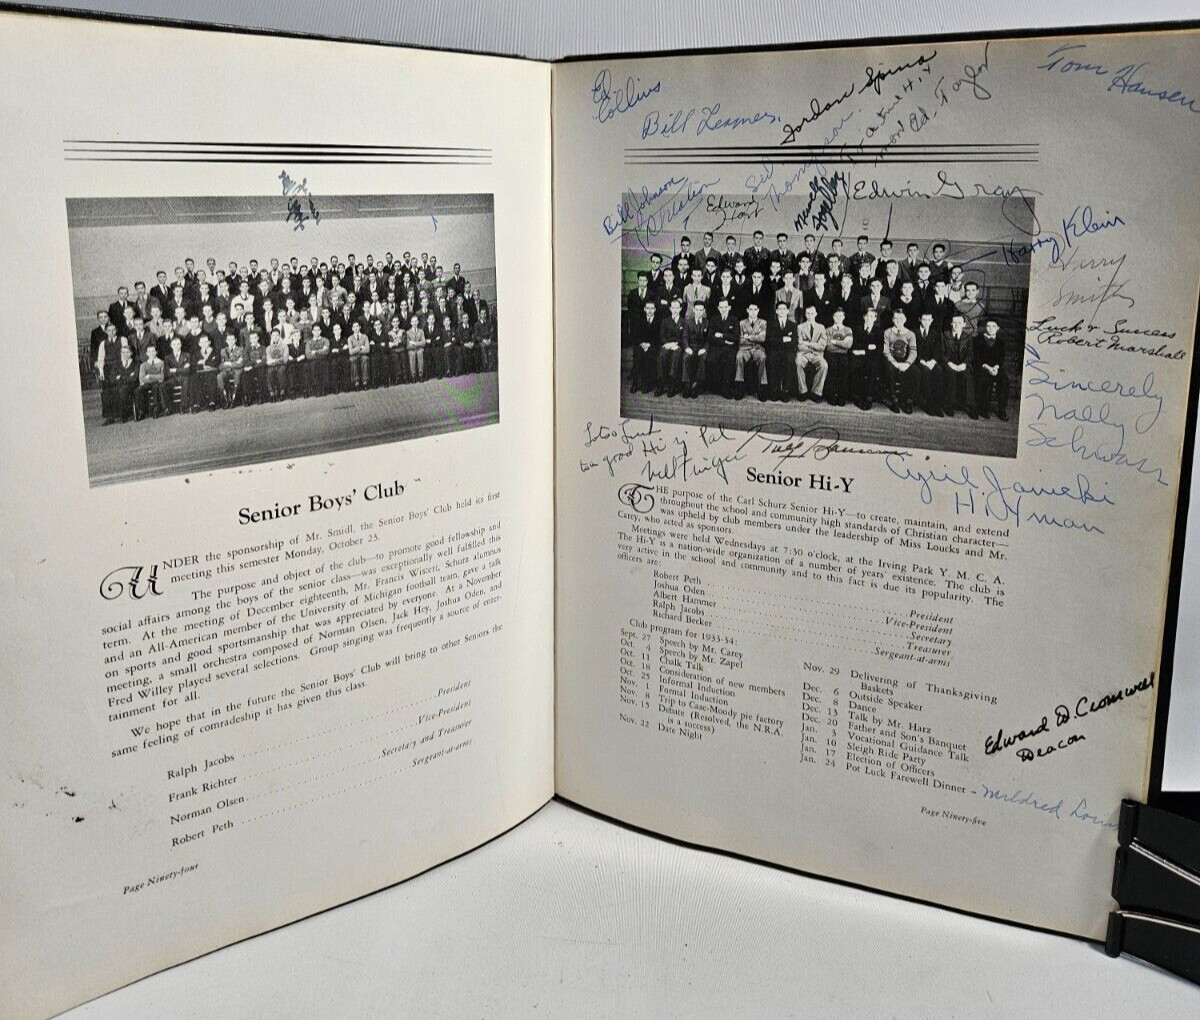 Senior Boys' Club
UNDER the sponsorship of Mr. Smidl, the Senior Boys' Club held its first
meeting this semester Monday, October 23.
The purpose and object of the club—to promote good fellowship and
social affairs among the boys of the senior class—was exceptionally well fulfilled this
term. At the meeting of December eighteenth, Mr. Francis Wistert, Schurz alumnus
and an All-American member of the University of Michigan football team, gave a talk
on sports and good sportsmanship that was appreciated by everyone. At a November
meeting, a small orchestra composed of Norman Olsen, Jack Hey, Joshua Oden, and
Fred Willey played several selections. Group singing was frequently a source of enter-
tainment for all.
We hope that in the future the Senior Boys' Club will bring to other Seniors the
same feeling of comradeship it has given this class.
Ralph Jacobs President
Frank Richter Vice-President
Norman Olsen Secretary and Treasurer
Robert Peth Sergeant-at-arms
Page Ninety-four
Ed. Collins
Bill
Jordan Spina
Tom Hansen
Ed. Taylor
Bill Johnson
Edward
Edwin Gray
Harry Klein
Harry
Smith
Luck & Success
Robert Marshall
Sincerely
Wally
Schwass
Lots o Luck
to a good Hi y Pal
Cyril Janicki
Hi Y man
Senior Hi-Y
THE purpose of the Carl Schurz Senior Hi-Y—to create, maintain, and extend
throughout the school and community high standards of Christian character—
was upheld by club members under the leadership of Miss Loucks and Mr.
Carey, who acted as sponsors.
Meetings were held Wednesdays at 7:30 o'clock, at the Irving Park Y. M. C. A.
The Hi-Y is a nation-wide organization of a number of years' existence. The club is
very active in the school and community and to this fact is due its popularity. The
officers are:
Robert Peth President
Joshua Oden Vice-President
Albert Hammer Secretary
Ralph Jacobs Treasurer
Richard Becker Sergeant-at-arms
Club program for 1933-34:
Sept. 27 Speech by Mr. Carey
Oct. 4 Speech by Mr. Zapel
Oct. 11 Chalk Talk
Oct. 18 Consideration of new members
Oct. 25 Informal Induction
Nov. 1 Formal Induction
Nov. 8 Trip to Case-Moody pie factory
Nov. 15 Debate (Resolved, the N.R.A.
is a success)
Nov. 22 Date Night
Nov. 29 Delivering of Thanksgiving
Baskets
Dec. 6 Outside Speaker
Dec. 8 Dance
Dec. 13 Talk by Mr. Harz
Dec. 20 Father and Son's Banquet
Jan. 3 Vocational Guidance Talk
Jan. 10 Sleigh Ride Party
Jan. 17 Election of Officers
Jan. 24 Pot Luck Farewell Dinner
Edward D. Cromwell
Deacon
Mildred
Page Ninety-five